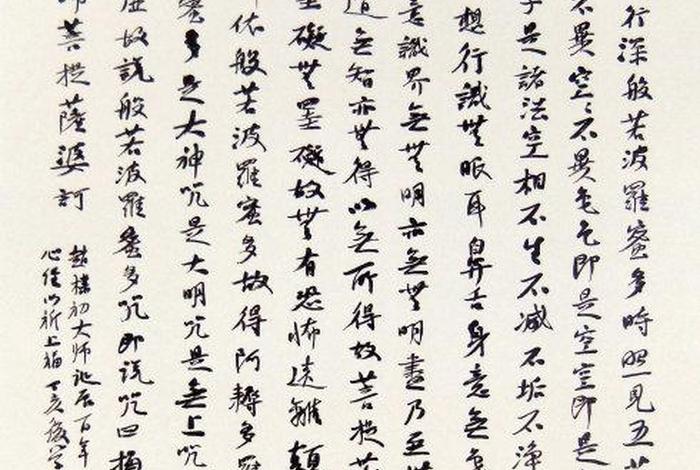 行深般若波羅蜜多時照見五
不異空々不異色色即是空空即是
子是諸法空相不生不滅不垢不淨
想行識無眼耳鼻舌身意無色
意識界無無明亦無無明盡乃至無
道無智亦無得以無所得故菩提薩
罣礙無罣礙故無有恐怖遠離顛
依般若波羅蜜多故得阿耨多羅
蜜多是大神咒是大明咒是無上咒
虛故說般若波羅蜜多咒即説咒曰揭
菩提薩婆訶
趙樸初大师誕辰百年
心经以祈上福 丁亥